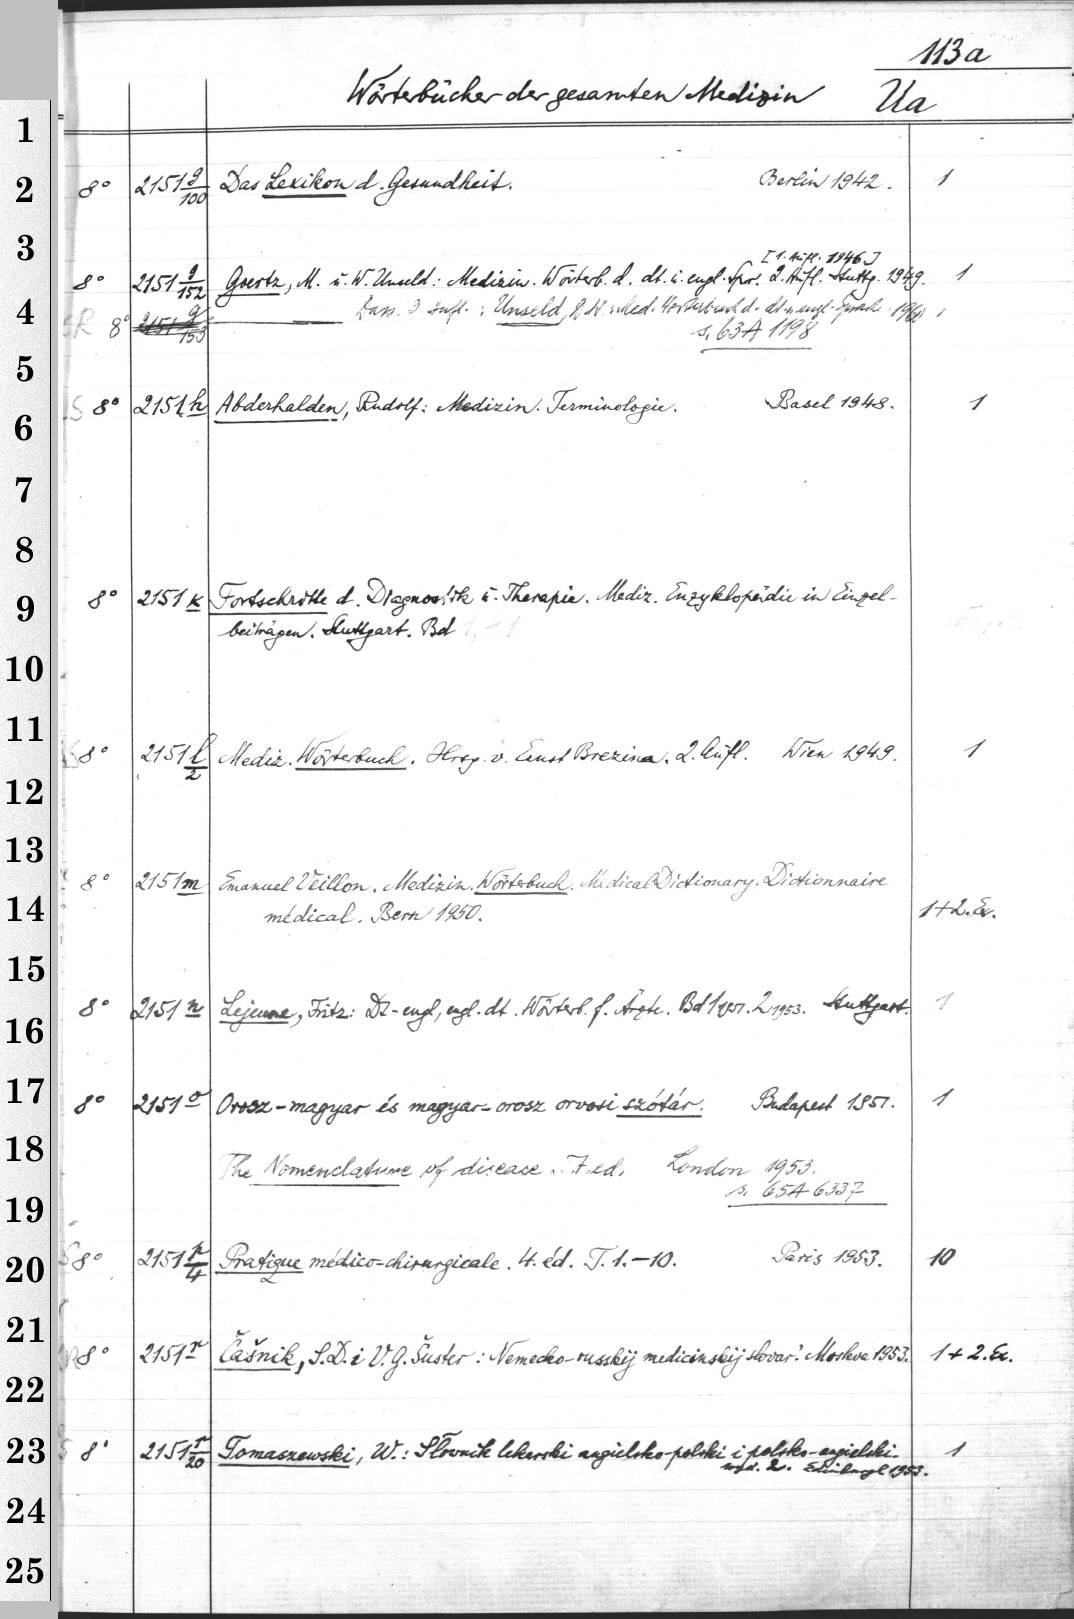 113a
Wörterbücher der gesamten Medizin Ua
1
2 8° 2151 g/100 Das Lexikon d. Gesundheit. Berlin 1942. 1
3 [1. Aufl. 1946]
8° 2151 g/152 Goertz, M. u. W. Unseld: Medizin. Wörterb. d. dt. u. engl. Spr. 2. Aufl. Stuttg. 1949. 1
4 8° 2151 g/153 Dass. 3. Aufl.: Unseld, D. W.: Med. Wörterbuch d. dt. u. engl. Sprache 1960
s. 63 A 1198
5
8° 2151 h Abderhalden, Rudolf: Medizin. Terminologie. Basel 1948. 1
6
7
8
9 8° 2151 k Fortschritte d. Diagnostik u. Therapie. Mediz. Enzyklopädie in Einzel-
beiträgen. Stuttgart. Bd
10
11
8° 2151 l/2 Mediz. Wörterbuch. Hrsg. v. Ernst Brezina. 2. Aufl. Wien 1949. 1
12
13
8° 2151 m Emanuel Veillon. Medizin. Wörterbuch. Medical Dictionary. Dictionnaire
14 médical. Bern 1950. 1+2. Ex.
15
8° 2151 n Lejeune, Fritz: Dt-engl, engl.dt. Wörterb. f. Ärzte. Bd 1 1951. 2 1953. Stuttgart. 1
16
17 8° 2151 o Orosz-magyar és magyar-orosz orvosi szótár. Budapest 1951. 1
18 The Nomenclature of disease. 7. ed. London 1953.
19 s. 65 A 6337
20 8° 2151 p/4 Pratique médico-chirurgicale. 4. éd. T. 1.–10. Paris 1953. 10
21
8° 2151 r Čašnik, S.D. i V.G. Šuster: Nemecko-russkij medicinskij slovar'. Moskva 1953. 1+2. Ex.
22
23 8° 2151 r/20 Tomaszewski, W.: Słownik lekarski angielsko-polski i polsko-angielski.
wyd. 2. Edinburgh 1953. 1
24
25